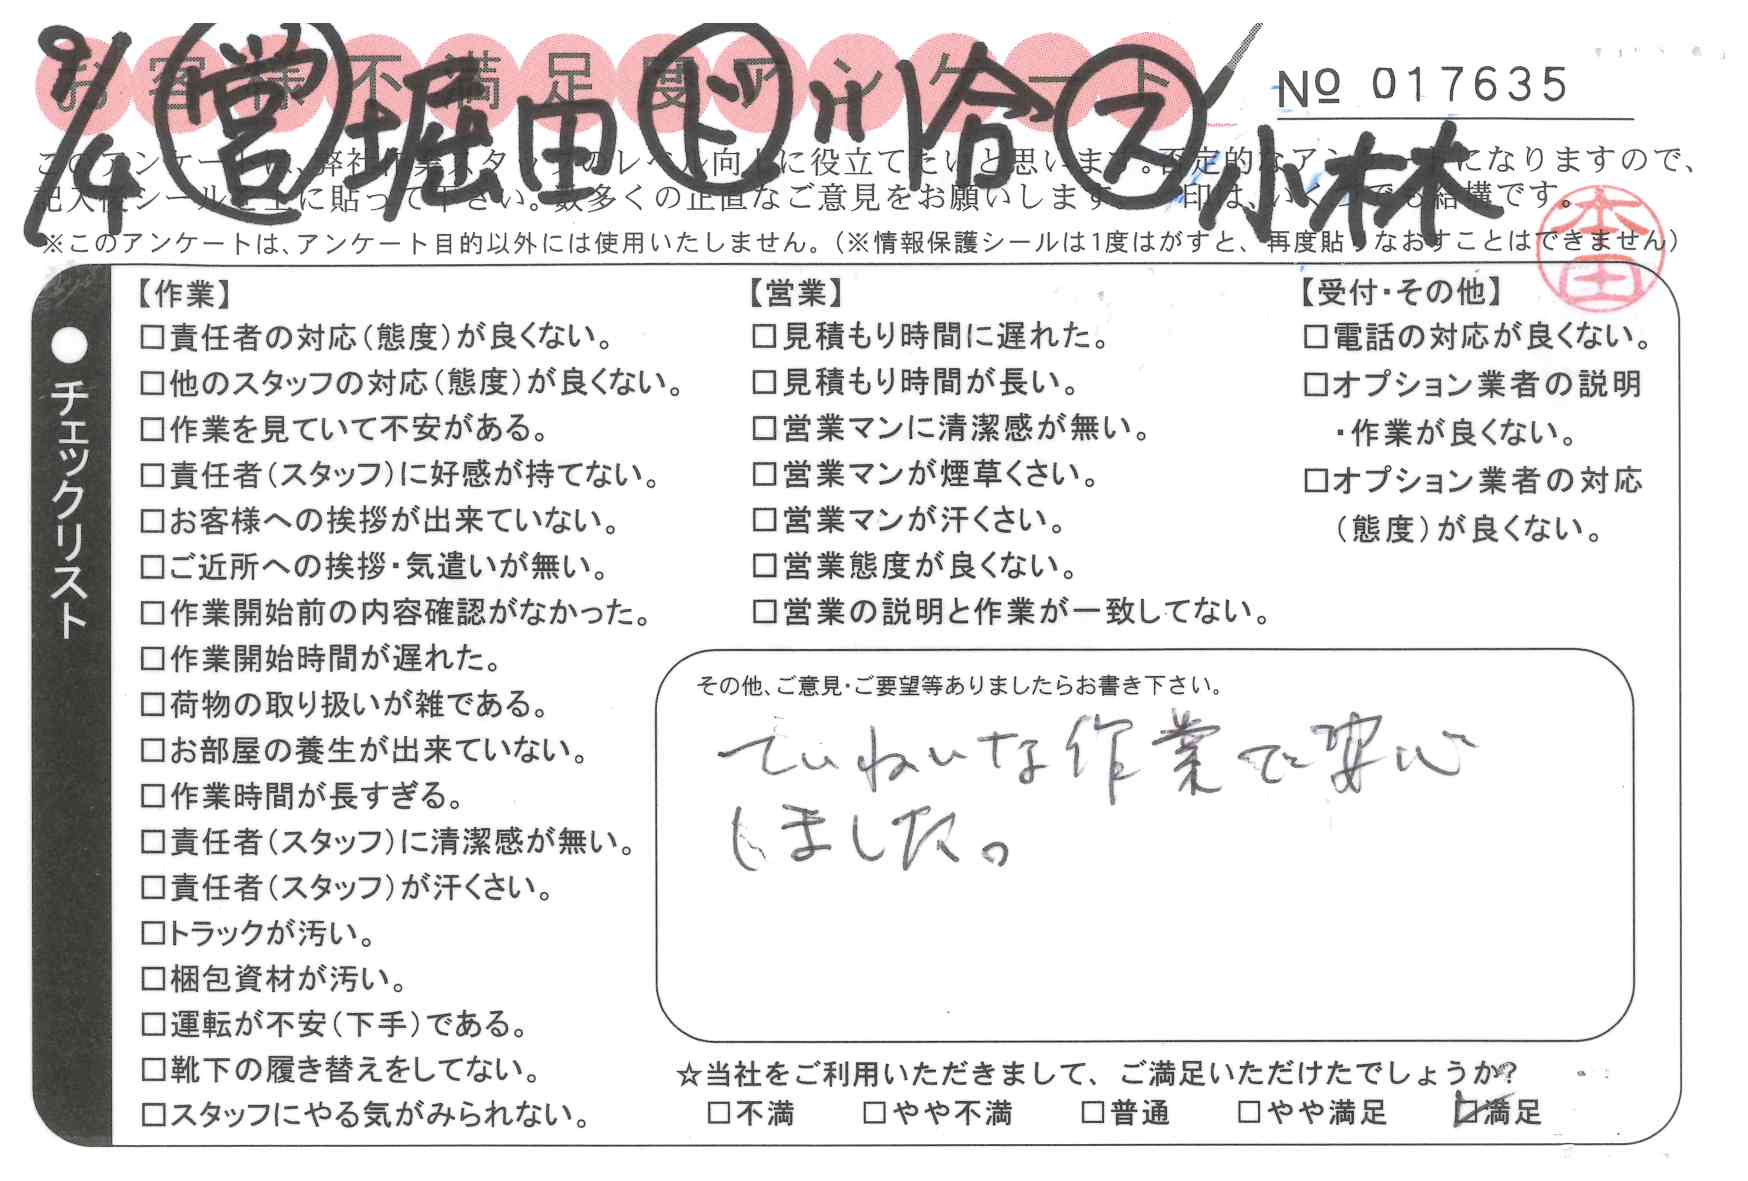 お客様不満足度アンケート
9/4 営 堀田 ド 川合 ス 小林
№ 017635
このアンケートは、弊社作業スタッフのレベル向上に役立てたいと思います。否定的なアンケートになりますので、
記入後シールを上に貼って下さい。数多くの正直なご意見をお願いします。 印は、いくつでも結構です。
※このアンケートは、アンケート目的以外には使用いたしません。（※情報保護シールは1度はがすと、再度貼りなおすことはできません）
本田
●チェックリスト
【作業】
□責任者の対応（態度）が良くない。
□他のスタッフの対応（態度）が良くない。
□作業を見ていて不安がある。
□責任者（スタッフ）に好感が持てない。
□お客様への挨拶が出来ていない。
□ご近所への挨拶・気遣いが無い。
□作業開始前の内容確認がなかった。
□作業開始時間が遅れた。
□荷物の取り扱いが雑である。
□お部屋の養生が出来ていない。
□作業時間が長すぎる。
□責任者（スタッフ）に清潔感が無い。
□責任者（スタッフ）が汗くさい。
□トラックが汚い。
□梱包資材が汚い。
□運転が不安（下手）である。
□靴下の履き替えをしてない。
□スタッフにやる気がみられない。
【営業】
□見積もり時間に遅れた。
□見積もり時間が長い。
□営業マンに清潔感が無い。
□営業マンが煙草くさい。
□営業マンが汗くさい。
□営業態度が良くない。
□営業の説明と作業が一致してない。
【受付・その他】
□電話の対応が良くない。
□オプション業者の説明
・作業が良くない。
□オプション業者の対応
（態度）が良くない。
その他、ご意見・ご要望等ありましたらお書き下さい。
ていねいな作業で安心
しました。
☆当社をご利用いただきまして、ご満足いただけたでしょうか?
□不満 □やや不満 □普通 □やや満足 ☑満足